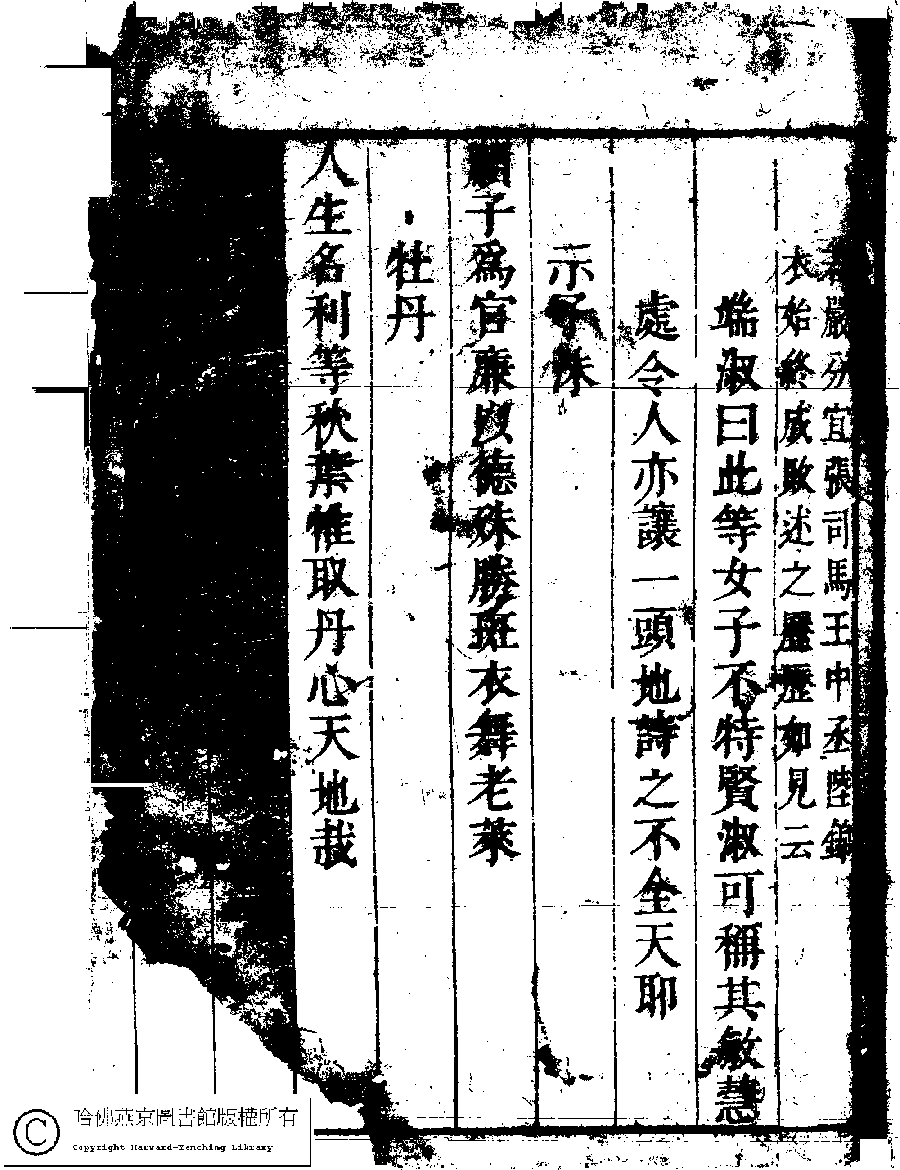 嚴分宜張司馬王中丞陸錦
衣始終成敗述之歷歷如見云
端淑曰此等女子不特賢淑可稱其敏慧
處令人亦讓一頭地詩之不全天耶
示子
願子為官廉以德殊勝斑衣舞老萊
牡丹
人生名利等秋葉惟取丹心天地哉
哈佛燕京圖書館版權所有
Copyright Harvard-Yenching Library